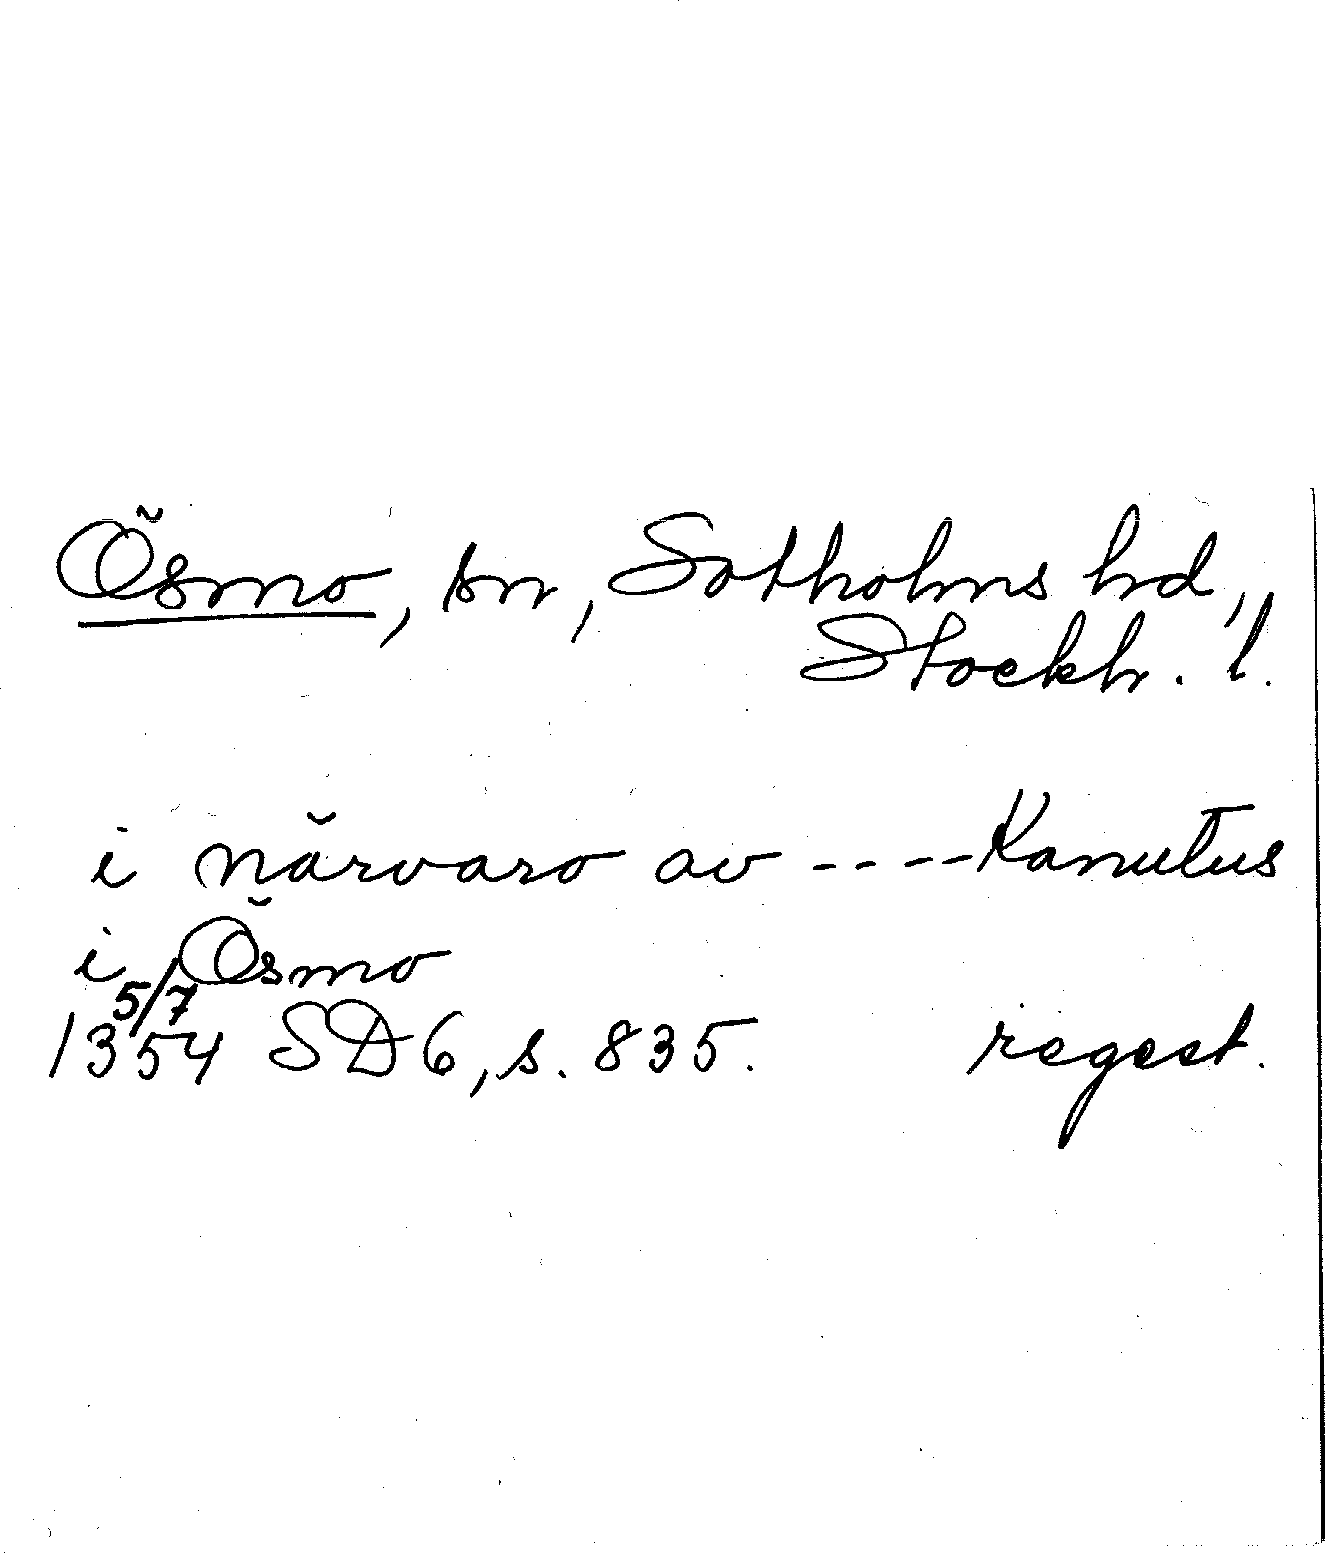 Ösmo, sn, Sotholms hd,
Stockh. l.
i närvaro av ---- Kanutus
i Ösmo
5/7
1354 SD6, s. 835. regest.